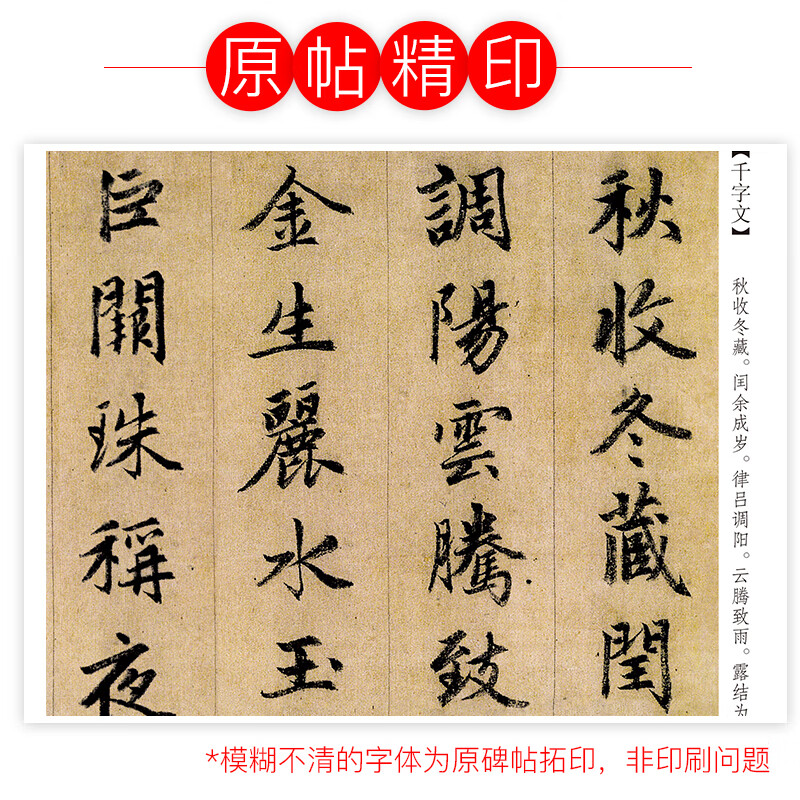 原帖精印
【千字文】
秋收冬藏。闰余成岁。律吕调阳。云腾致雨。露结为
秋收冬藏閏
調陽雲騰致
金生麗水玉
巨闕珠稱夜
*模糊不清的字体为原碑帖拓印，非印刷问题